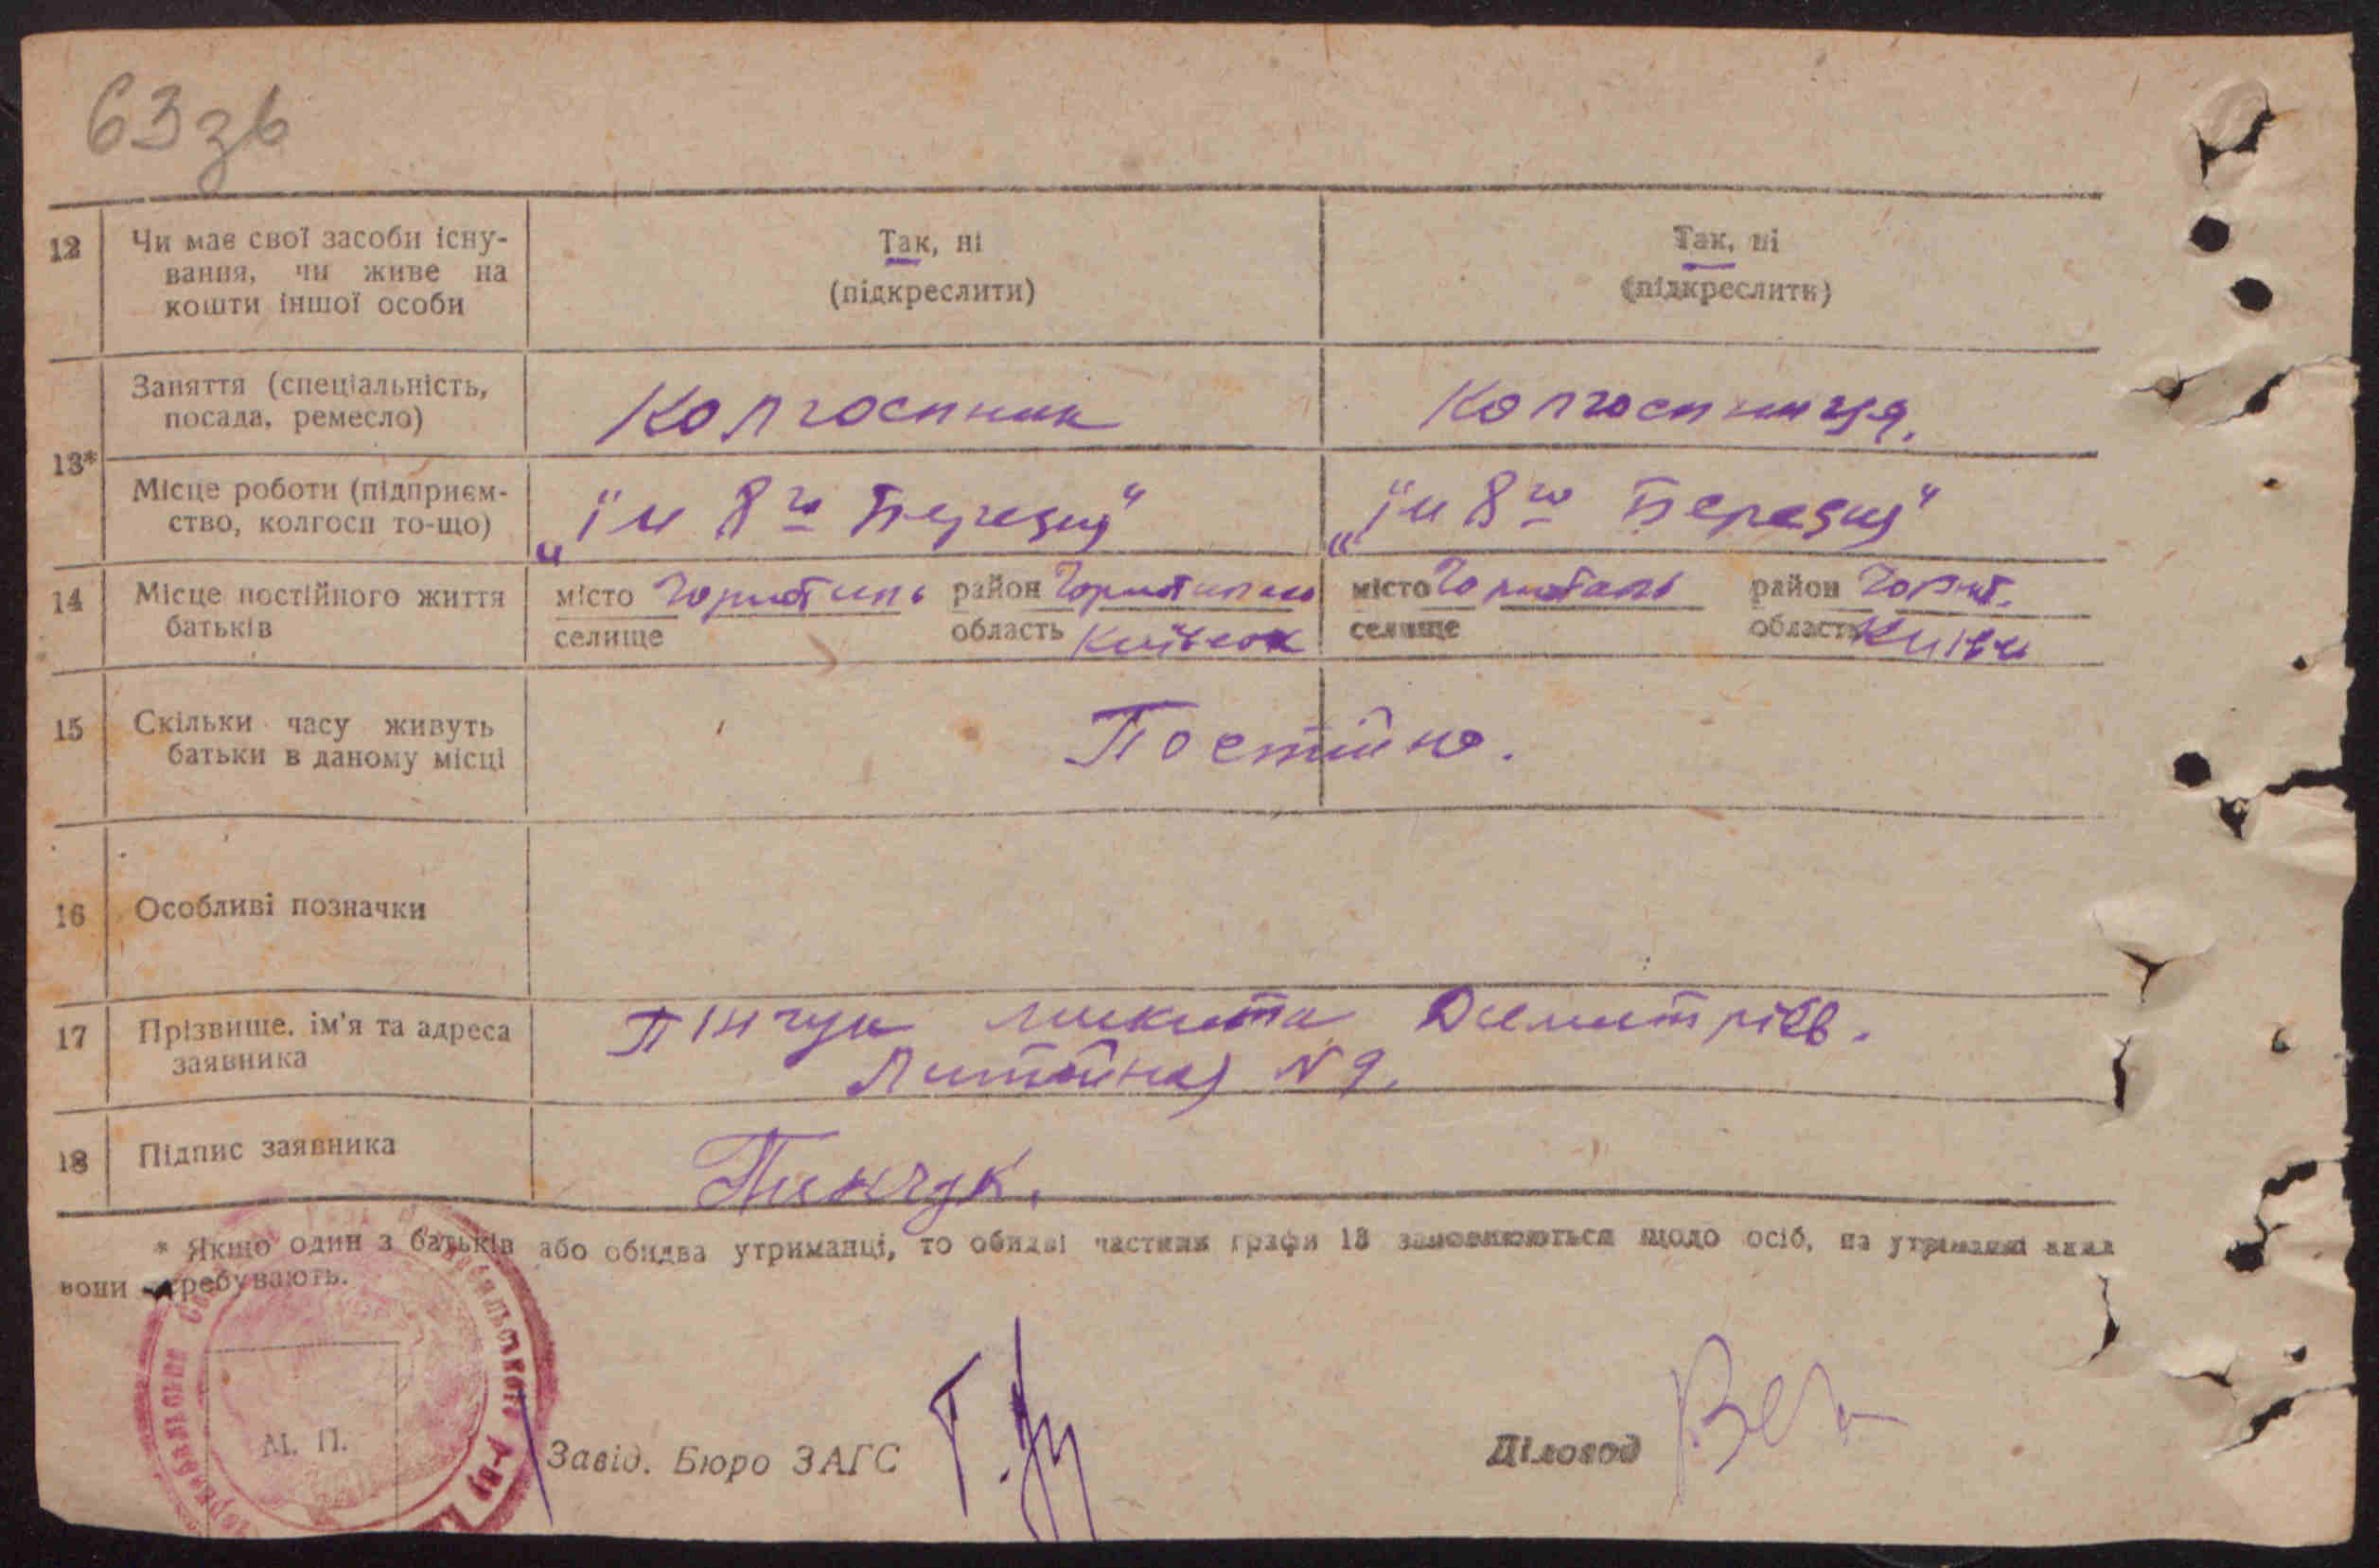 63зв
12 Чи має свої засоби існу- Так, ні Так, ні
вання, чи живе на (підкреслити) (підкреслити)
кошти іншої особи
Заняття (спеціальність, Колгоспник Колгоспниця.
посада, ремесло)
13*
Місце роботи (підприєм- „ім 8го Березня“ „ім 8го Березня“
ство, колгосп то-що)
14 Місце постійного життя місто Чорнобиль район місто Чорнобиль район Чорноб.
батьків селище область Київськ селище область Київ
15 Скільки часу живуть Постійно.
батьки в даному місці
16 Особливі позначки
17 Прізвище, ім'я та адреса Пінчук Микита Дмитрієв.
заявника Литейная N 9.
18 Підпис заявника Пинчук.
* Якщо один з батьків або обидва утриманці, то обидві частини графи 13 заповнюються щодо осіб, на утриманні яких
вони перебувають.
М. П.
Завід. Бюро ЗАГС Діловод